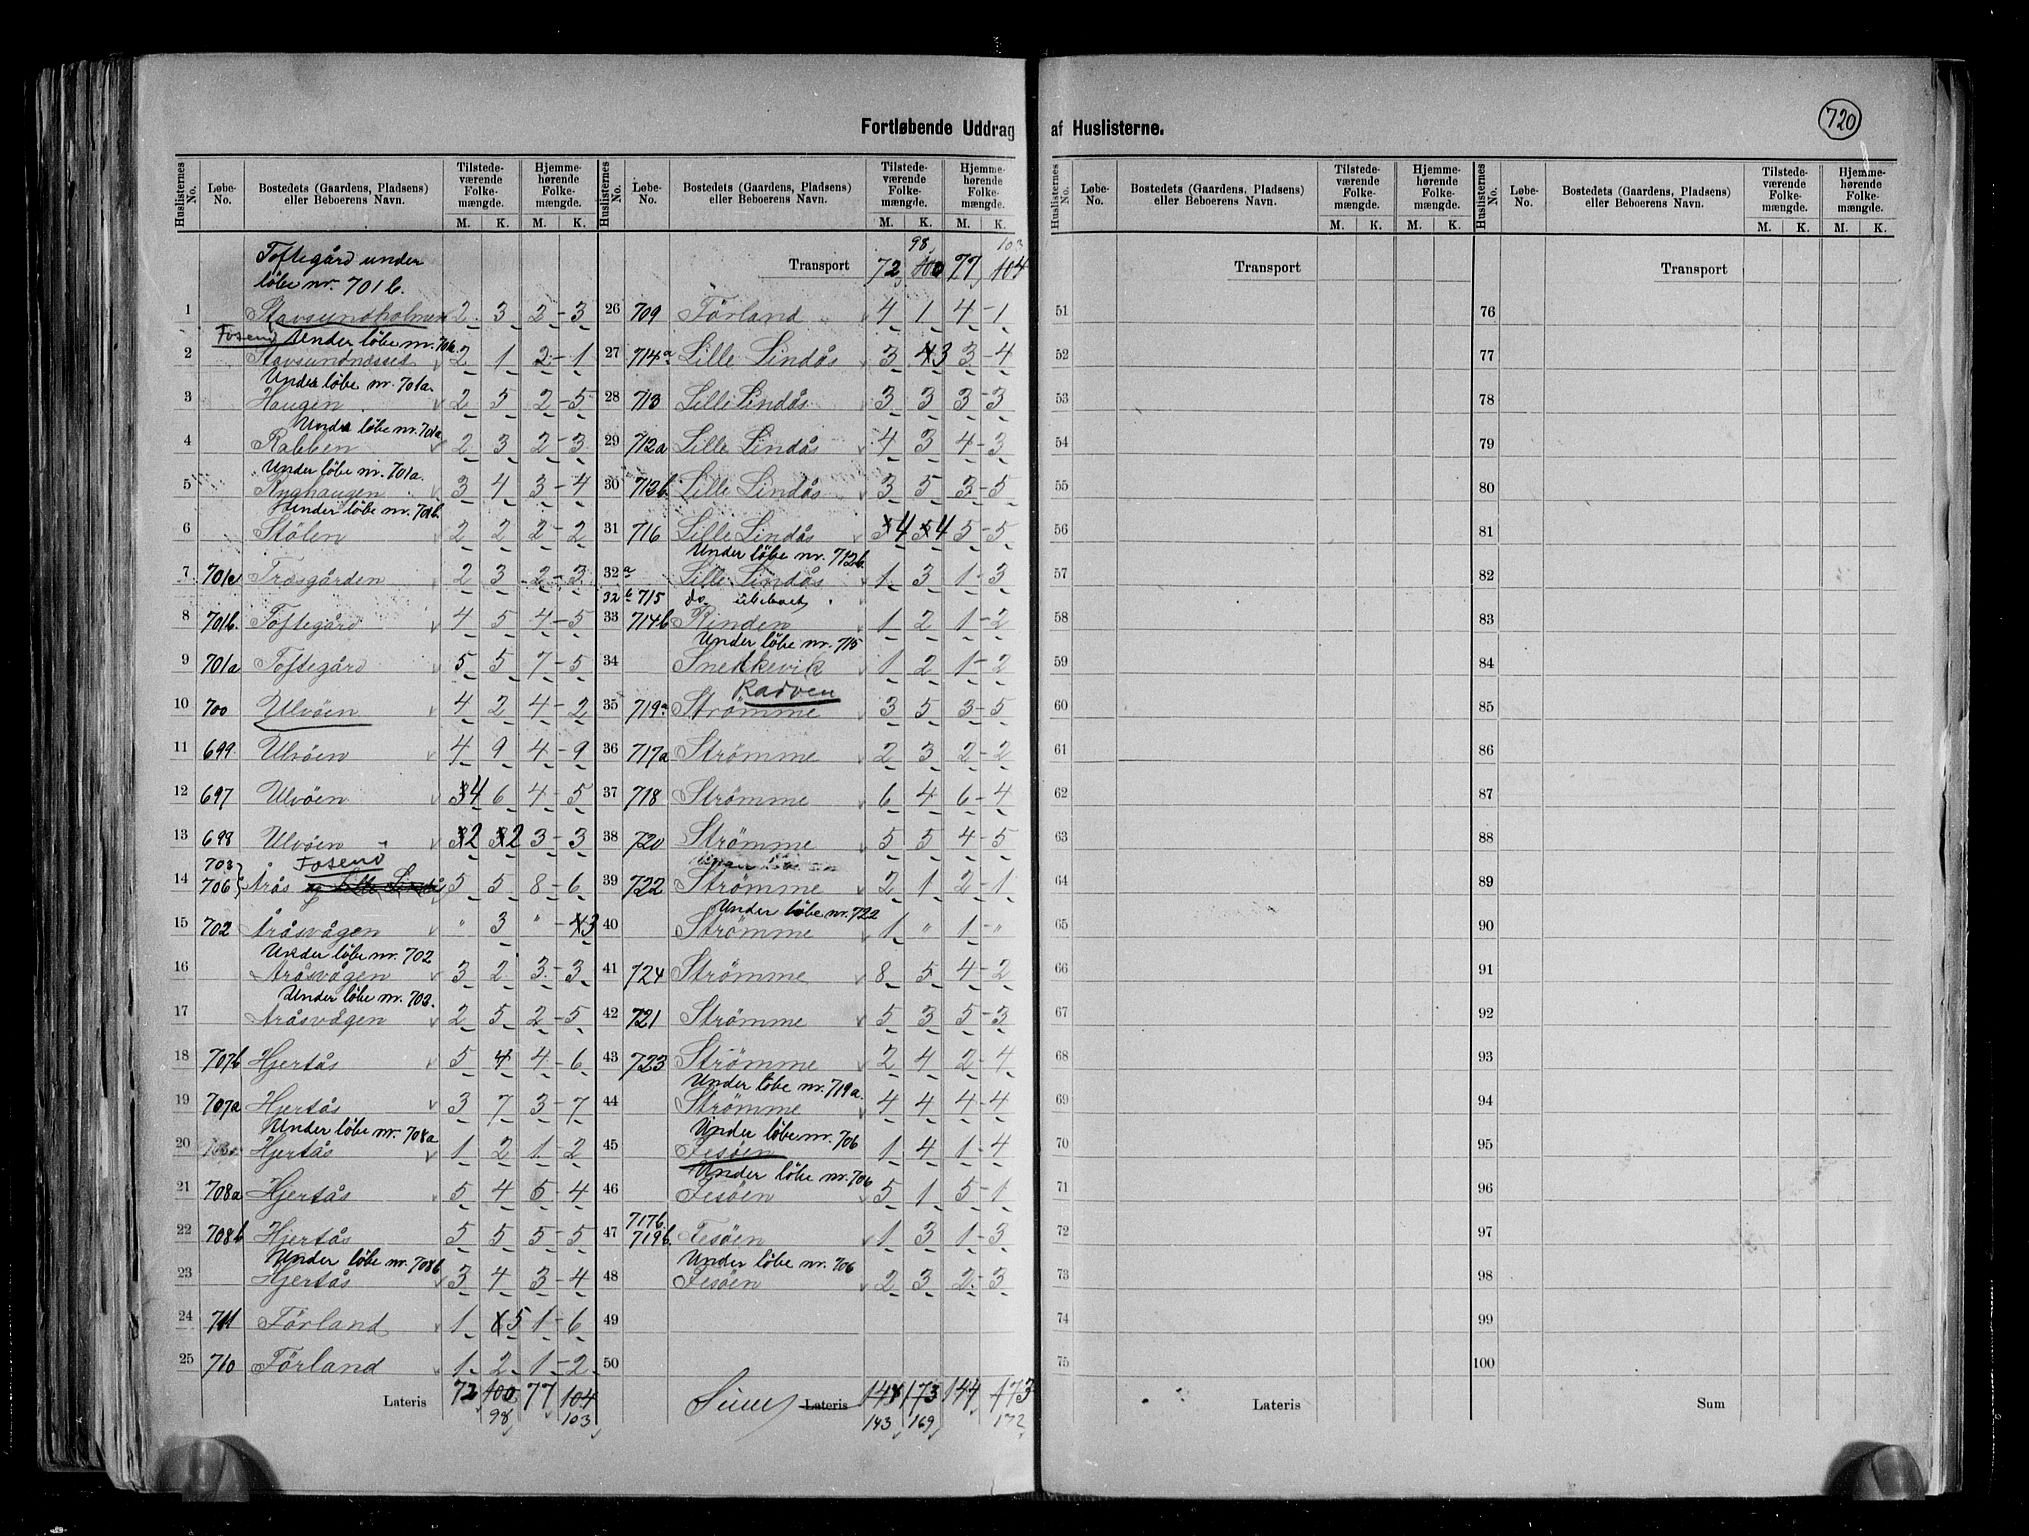 720
Fortløbende Uddrag af Huslisterne.
Huslisternes No. | Løbe-No. | Bostedets (Gaardens, Pladsens) eller Beboerens Navn. | Tilstedeværende Folkemængde. M. K. | Hjemmehørende Folkemængde. M. K.
Toftegård under
løbe nr. 701b.
1 Stavsundholmen 2 3 2-3
Fosend Under løbe nr. 701a
2 Stavsundnesset 2 1 2-1
Under løbe nr. 701a.
3 Haugen 2 5 2-5
Under løbe nr. 701a
4 Rabben 2 3 2-3
Under løbe nr. 701a.
5 Ryghaugen 3 4 3-4
Under løbe nr. 701b.
6 Stølen 2 2 2-2
7 701c Træsgården 2 3 2-3
8 701b. Toftegård 4 5 4-5
9 701a Toftegård 5 5 7-5
10 700 Ulvøen 4 2 4-2
11 699 Ulvøen 4 9 4-9
12 697 Ulvøen 34 6 4-5
13 698 Ulvøen 32 32 3-3
703 Fosend
14 706 Årås og Lille Lindås 5 5 8-6
15 702 Åråsvågen " 3 " -43
Under løbe nr. 702
16 Åråsvågen 3 2 3-3
Under løbe nr. 703.
17 Åråsvågen 2 5 2-5
18 707b Hjertås 5 4 4-6
19 707a Hjertås 3 7 3-7
Under løbe nr. 708a
20 Hjertås 1 2 1-2
21 708a Hjertås 5 4 5-4
22 708b Hjertås 5 5 5-5
Under løbe nr. 708b
23 Hjertås 3 4 3-4
24 711 Förland 1 5 1-6
25 710 Förland 1 2 1-2
Lateris 72 100 77 104
98 103
98 103
Transport 72 100 77 104
26 709 Förland 4 1 4-1
27 714a Lille Lindås 3 43 3-4
28 713 Lille Lindås 3 3 3-3
29 712a Lille Lindås 4 3 4-3
30 713b Lille Lindås 3 5 3-5
31 716 Lille Lindås 54 54 5-5
Under løbe nr. 712b.
32a Lille Lindås 1 3 1-3
32b 715 do. ubeboet
33 714b Rinden 1 2 1-2
Under løbe nr. 715
34 Snedkevik 1 2 1-2
Radven
35 719a Strömme 3 5 3-5
36 717a Strömme 2 3 2-2
37 718 Strömme 6 4 6-4
38 720 Strömme 5 5 4-5
39 722 Strömme 2 1 2-1
Under løbe nr. 722
40 Strömme 1 " 1-"
41 724 Strömme 8 5 4-2
42 721 Strömme 5 3 5-3
43 723 Strömme 2 4 2-4
Under løbe nr. 719a.
44 Strömme 4 4 4-4
Under løbe nr. 706
45 Fesöen 1 4 1-4
Under løbe nr. 706
46 Fesöen 5 1 5-1
717b.
47 719b. Fesöen 1 3 1-3
Under løbe nr. 706
48 Fesöen 2 3 2-3
49
50
Sum Lateris 148 173 144 173
143 169 172
Huslisternes No. | Løbe-No. | Bostedets (Gaardens, Pladsens) eller Beboerens Navn. | Tilstedeværende Folkemængde. M. K. | Hjemmehørende Folkemængde. M. K.
Transport
51
52
53
54
55
56
57
58
59
60
61
62
63
64
65
66
67
68
69
70
71
72
73
74
75
Lateris
Transport
76
77
78
79
80
81
82
83
84
85
86
87
88
89
90
91
92
93
94
95
96
97
98
99
100
Sum